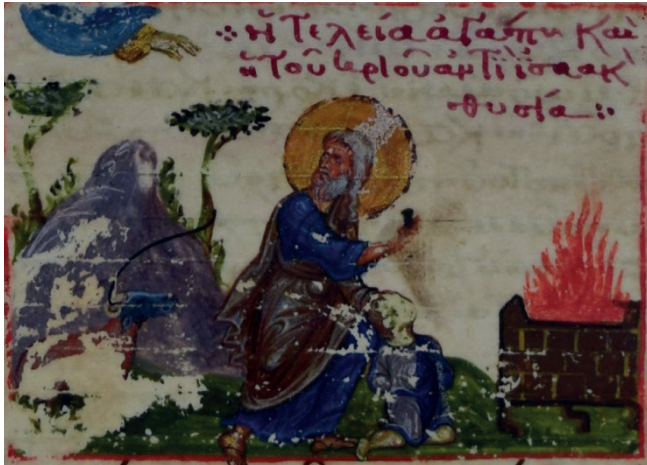 ἡ τελεία ἀγάπη καὶ
ἡ τοῦ κριοῦ ἀντὶ ἰσαὰκ
θυσία